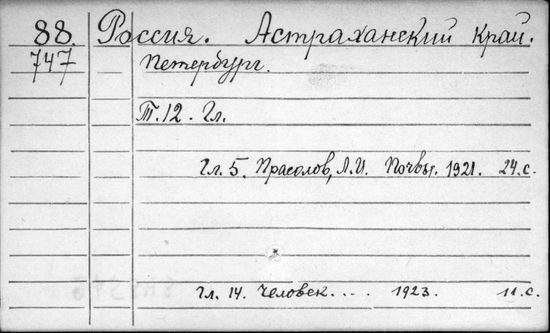 88. Россия. Астраханский край.
747 Петербург.
Т. 12. Гл.
Гл. 5. Прасолов, Л.И. Почвы. 1921. 24.с.
Гл. 14. Человек.... 1923. 11.с.